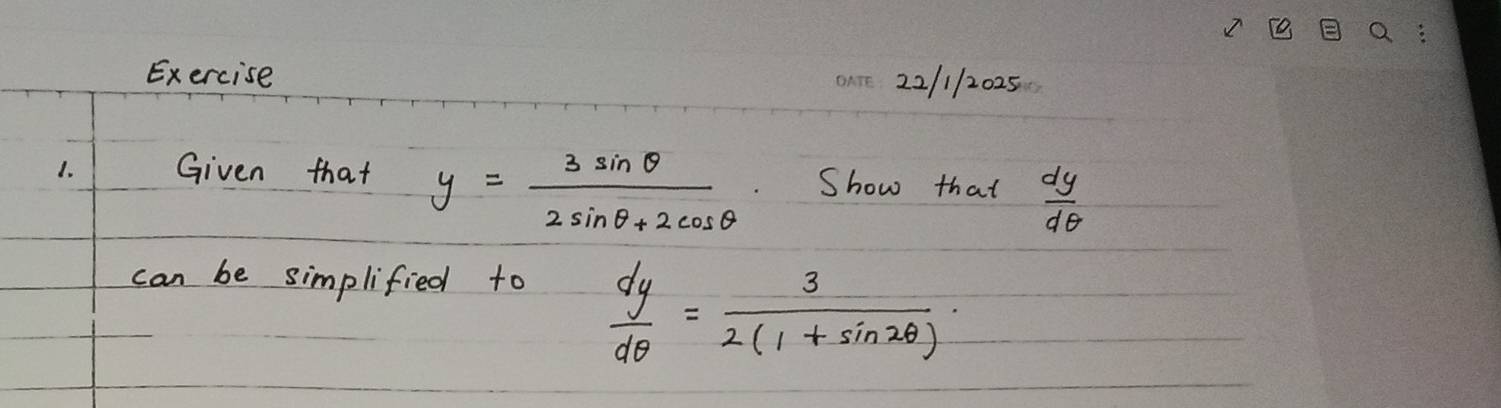 Exercise
DATE: 22/1/2025
1. Given that y = 3 sin θ / 2 sin θ + 2 cos θ . Show that dy/dθ
can be simplified to dy/dθ = 3 / 2(1 + sin 2θ) .